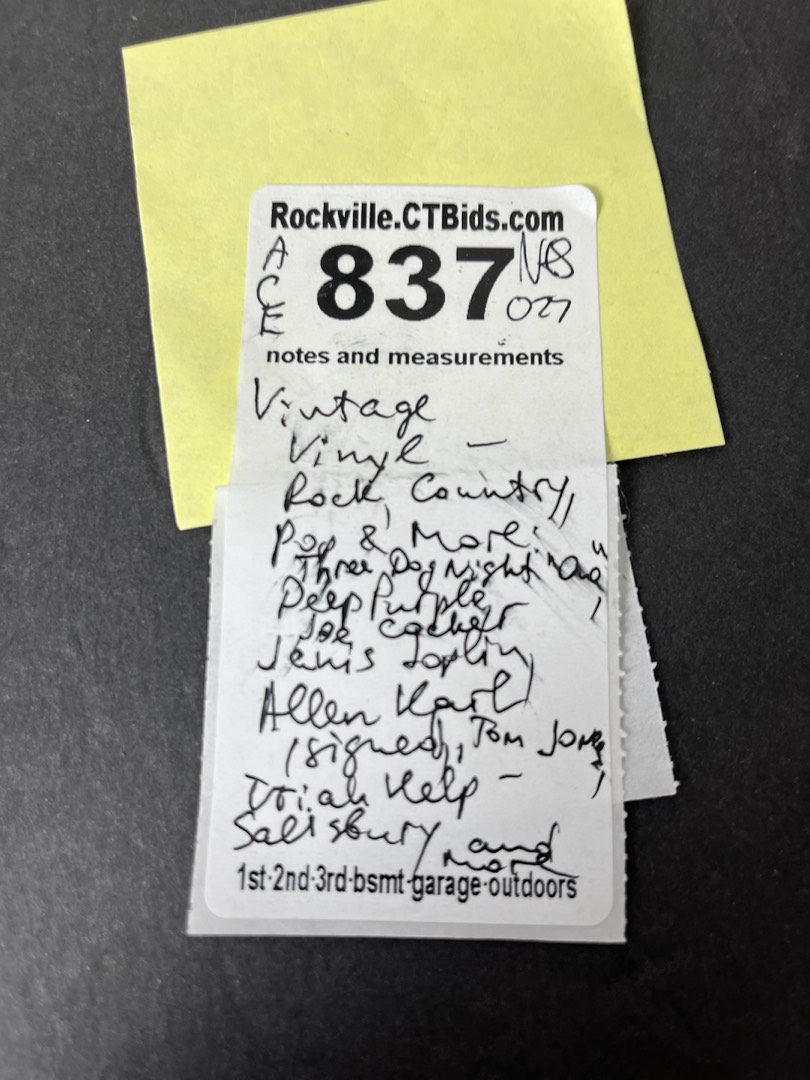 Rockville.CTBids.com
ACE 837 NB
027
notes and measurements
Vintage
Vinyl -
Rock, Country,
Pop & More:
Three Dog Night "One"
Deep Purple,
Joe Cocker
Janis Joplin,
Allen Karl
(signed), Tom Jones,
Uriah Help -
Salisbury and
more
1st·2nd·3rd·bsmt·garage·outdoors